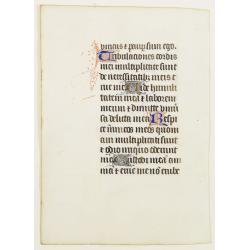 unicus et pauper sum ego.
Tribulaciones cordis
mei multiplicate sunt
de necessitatibus meis e
rue me Vide humili
tatem meā et laborem
meum et dimitte univer
sa delicta mea Respi
ce inimicos meos quoni
am multiplicati sunt
et odio iniquo oderunt
me Custodi anim
am meā et erue me non erube